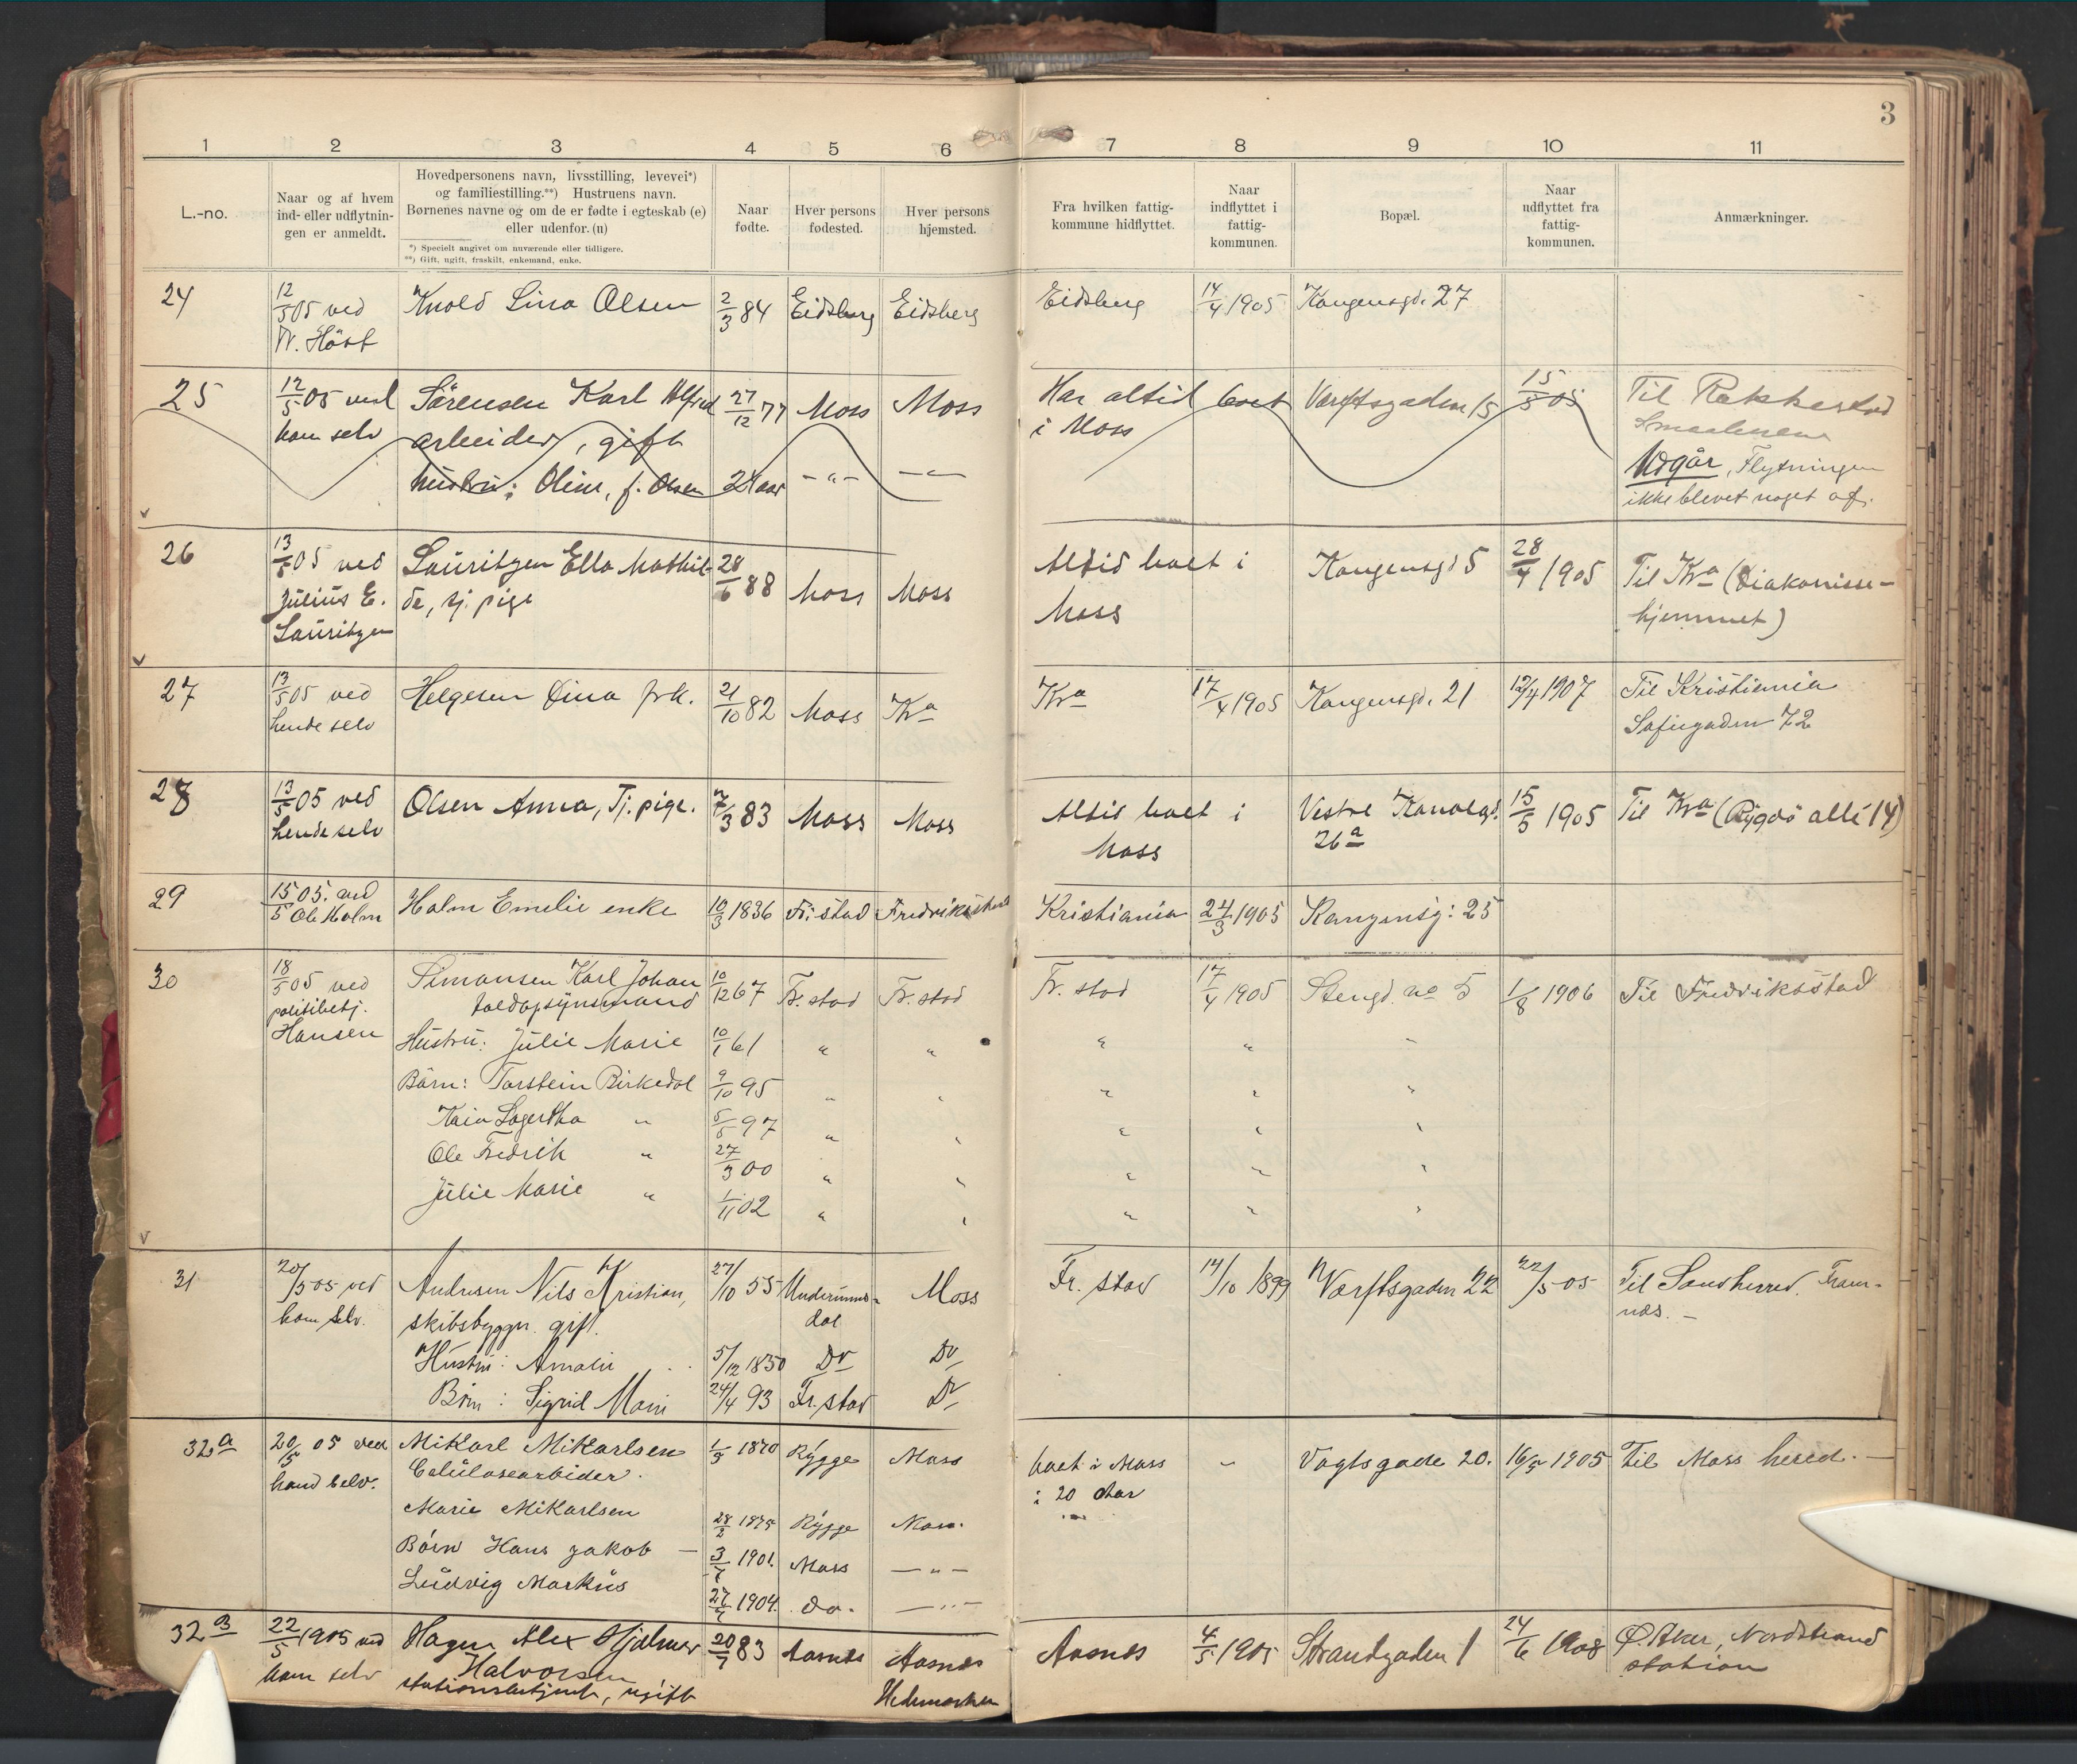 3
1 2 3 4 5 6 7 8 9 10 11
L.-no.
Naar og af hvem
ind- eller udflytnin-
gen er anmeldt.
Hovedpersonens navn, livsstilling, levevei*)
og familiestilling.**) Hustruens navn.
Børnenes navne og om de er fødte i egteskab (e)
eller udenfor. (u)
*) Specielt angivet om nuværende eller tidligere.
**) Gift, ugift, fraskilt, enkemand, enke.
Naar
fødte.
Hver persons
fødested.
Hver persons
hjemsted.
Fra hvilken fattig-
kommune hidflyttet.
Naar
indflyttet i
fattig-
kommunen.
Bopæl.
Naar
udflyttet fra
fattig-
kommunen.
Anmærkninger.
24 12/5 05 ved Knold Lina Olsen 2/3 84 Eidsberg Eidsberg Eidsberg 14/4 1905 Kongensgd. 27
W. Höst
25 12/5 05 ved Sörensen Karl Alfred 27/12 77 Moss Moss Har altid boet Værftsgaden 15 15/5 05 Til Rakkestad
ham selv arbeider, gift i Moss
hustru: Oline, f. Olsen 24 aar -"- -"- Udgår, Flytningen
ikke blevet noget af.
26 13/5 05 ved Lauritzen Ella Mathil- 28/6 88 Moss Moss Altid boet i Kongensgd 5 28/4 1905 Til Kra (Diakonisse-
Julius E. de, tj. pige Moss hjemmet)
Lauritzen
27 13/5 05 ved Helgesen Dina frk. 21/10 82 Moss Kra Kra 17/4 1905 Kongensgd. 21 12/4 1907 Til Kristiania
hende selv Sofiegaden 72
28 13/5 05 ved Olsen Anna, Tj. pige. 7/3 83 Moss Moss Altid boet i Vestre Kanalgd. 15/5 1905 Til Kra (Bygdö allé 14)
hende selv Moss 26a
29 15/5 05. ved Holm Emelie enke 10/3 1836 Fr. stad Fredrikstad Kristiania 24/3 1905 Kongensg: 25
Ole Holm
30 18/5 05 ved Simonsen Karl Johan 10/12 67 Fr. stad Fr. stad Fr. stad 17/4 1905 Stengd. no 5 1/8 1906 Til Fredriksstad
politibetj. toldopsynsmand
Hansen Hustru: Julie Marie 10/1 61 " " " " "
Börn: Torstein Birkedal 9/10 95 " " " " "
Kaia Lagertha " 5/5 97 " " " " "
Ole Fredrik " 27/3 00 " " " " "
Julie Marie " 1/11 02 " " " " "
31 20/5 05 ved Andresen Nils Kristian, 27/10 55 Moss Fr. stad 14/10 1899 Værftsgaden 22 22/5 05 Til Sandherred. Fram-
ham selv. skibsbygger. gift. dal næs. -
Hustru: Amalie 5/12 1850 Do Do
Börn: Sigrid Marie 24/4 93 Fr. stad Do
32 a 20/5 05 ved Mikael Mikaelsen 1/5 1870 Rygge Moss boet i Moss " Vogtsgade 20. 16/5 1905 Til Moss herred. -
hand selv. Celulosearbider. i 20 Aar
Marie Mikaelsen 28/2 1875 Rygge Moss. "
Börn Hans Jakob - 3/7 1901. Moss -"-
Ludvig Markus 27/7 1904. do. -"-
32 B 22/5 1905 ved Hagen Alex Hjalmar 20/7 83 Aasnes Aasnes Aasnes 4/5 1905 Strandgaden 1 24/6 1908 Ø. Aker, Nordstrand
ham selv Halvorsen Hedemarken station
stationsbetjent, ugift